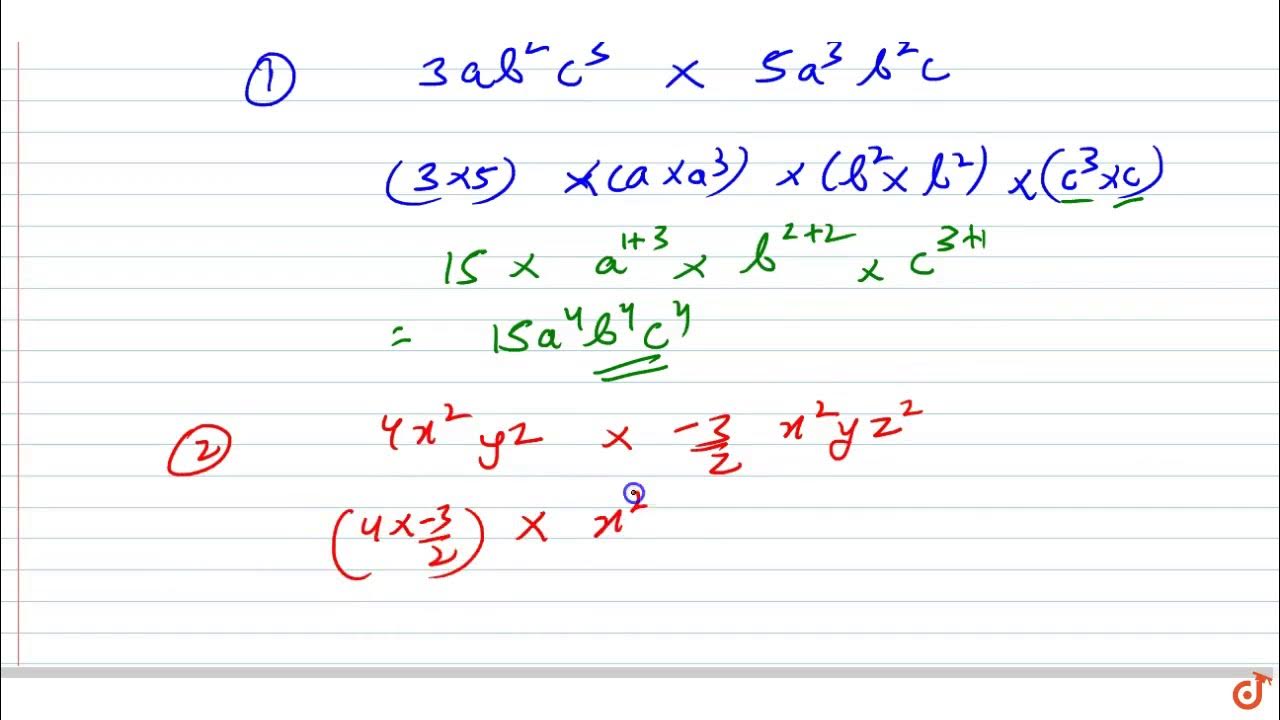 ① 3ab²c³ × 5a³b²c
(3×5) ×(a×a³) ×(b²×b²) ×(c³×c)
15 × a¹⁺³ × b²⁺² × c³⁺¹
= 15a⁴b⁴c⁴
② 4x²yz × -3/2 x²yz²
(4×-3/2) × x²